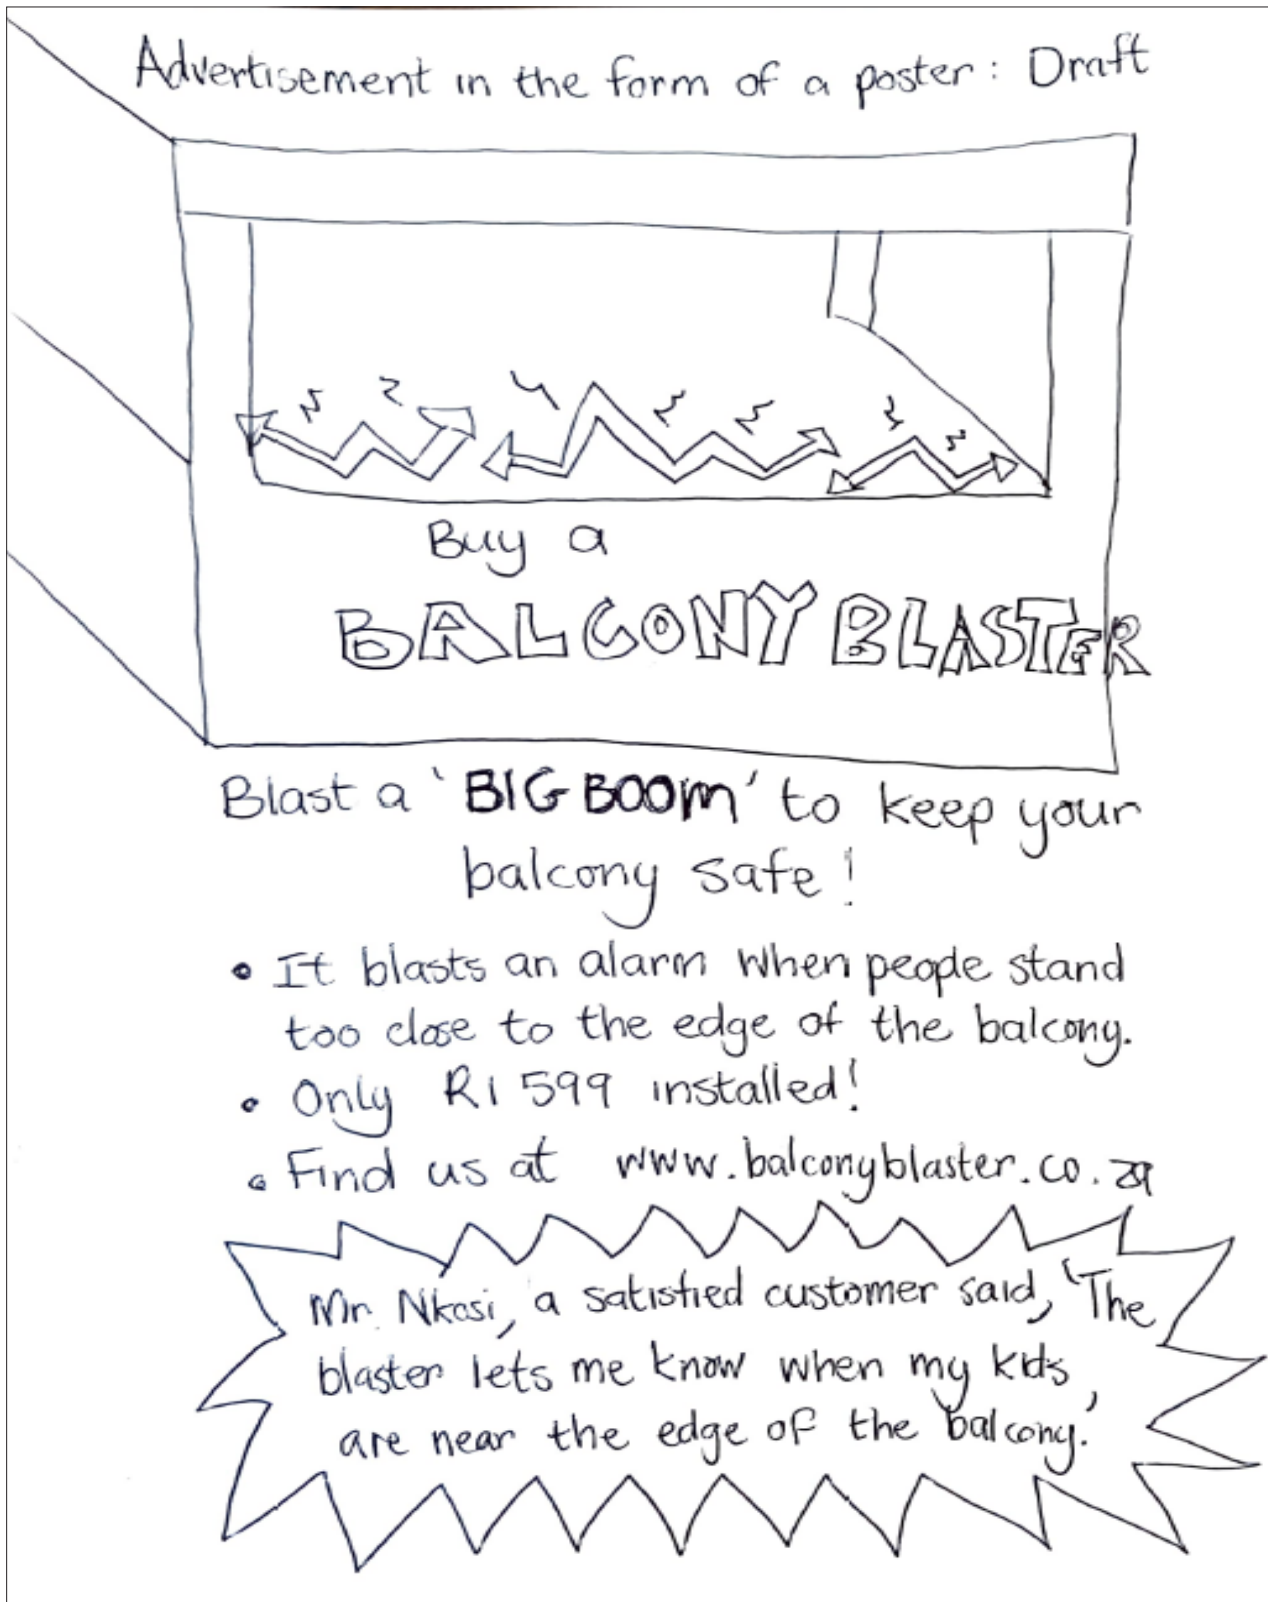 Advertisement in the form of a poster: Draft
Buy a
BALCONY BLASTER
Blast a 'BIG BOOM' to keep your
balcony safe!
• It blasts an alarm when people stand
too close to the edge of the balcony.
• Only R1 599 installed!
• Find us at www.balconyblaster.co.za
Mr. Nkosi, a satisfied customer said, 'The
blaster lets me know when my kids
are near the edge of the balcony.'